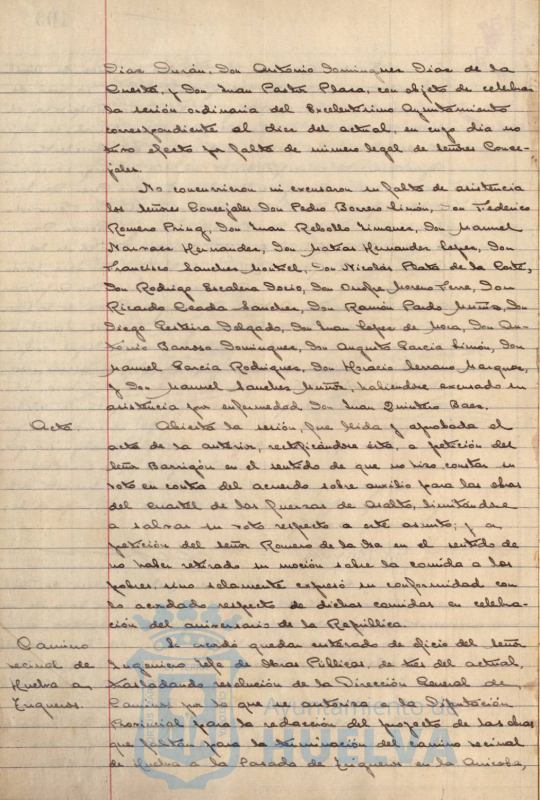 Diaz Durán, Don Antonio Dominguez Diaz de la
Cuesta, y Don Juan Pastor Plaza, con objeto de celebrar
la sesión ordinaria del Excelentísimo Ayuntamiento
correspondiente al dice del actual, en cuyo dia no
tuvo efecto por falta de número legal de Señores Conce-
jales.
No concurrieron ni excusaron su falta de asistencia
los Señores Concejales Don Pedro Borrero Limón, Don Federico
Romero Don Juan Rebollo Jimenez, Don Manuel
Narvaez Hernandez, Don Matias Hernandez Lopez, Don
Francisco Sanchez Montiel, Don Nicolás Plata de la Corte,
Don Rodrigo Escalera Don Onofre Moreno Don
Ricardo Ceada Sanchez, Don Ramón Pardo Muñoz, Don
Diego Delgado, Don Juan Lopez de Mora, Don An-
tonio Barroso Dominguez, Don Augusto Garcia Limón, Don
Manuel Garcia Rodriguez, Don Horacio Serrano Marquez,
y Don Manuel Sanchez Muñoz, habiendose excusado su
asistencia por enfermedad Don Juan Quintero Baez.
Acta Abierta la sesión, fue leida y aprobada el
acta de la anterior, rectificándose ésta, a petición del
Señor Barrigón en el sentido de que no hizo constar su
voto en contra del acuerdo sobre auxilio para las obras
del cuartel de las fuerzas de Asalto, limitándose
a salvar su voto respecto a este asunto; y a
petición del Señor Romero de la Osa en el sentido de
no haber retirado su moción sobre la comida a los
pobres, sino solamente expresó su conformidad con
lo acordado respecto de dichas comidas en celebra-
ción del aniversario de la República.
Camino vecinal de Huelva a Trigueros.
Se acordó quedar enterado de oficio del Señor
Ingeniero Jefe de Obras Públicas, de tres del actual,
trasladando resolución de la Dirección General de
Caminos por la que se autoriza a la Diputación
Provincial para la redacción del proyecto de las obras
que faltan para la terminación del camino vecinal
de Huelva a la Pasada de Trigueros en la
Ayuntamiento de
HUELVA